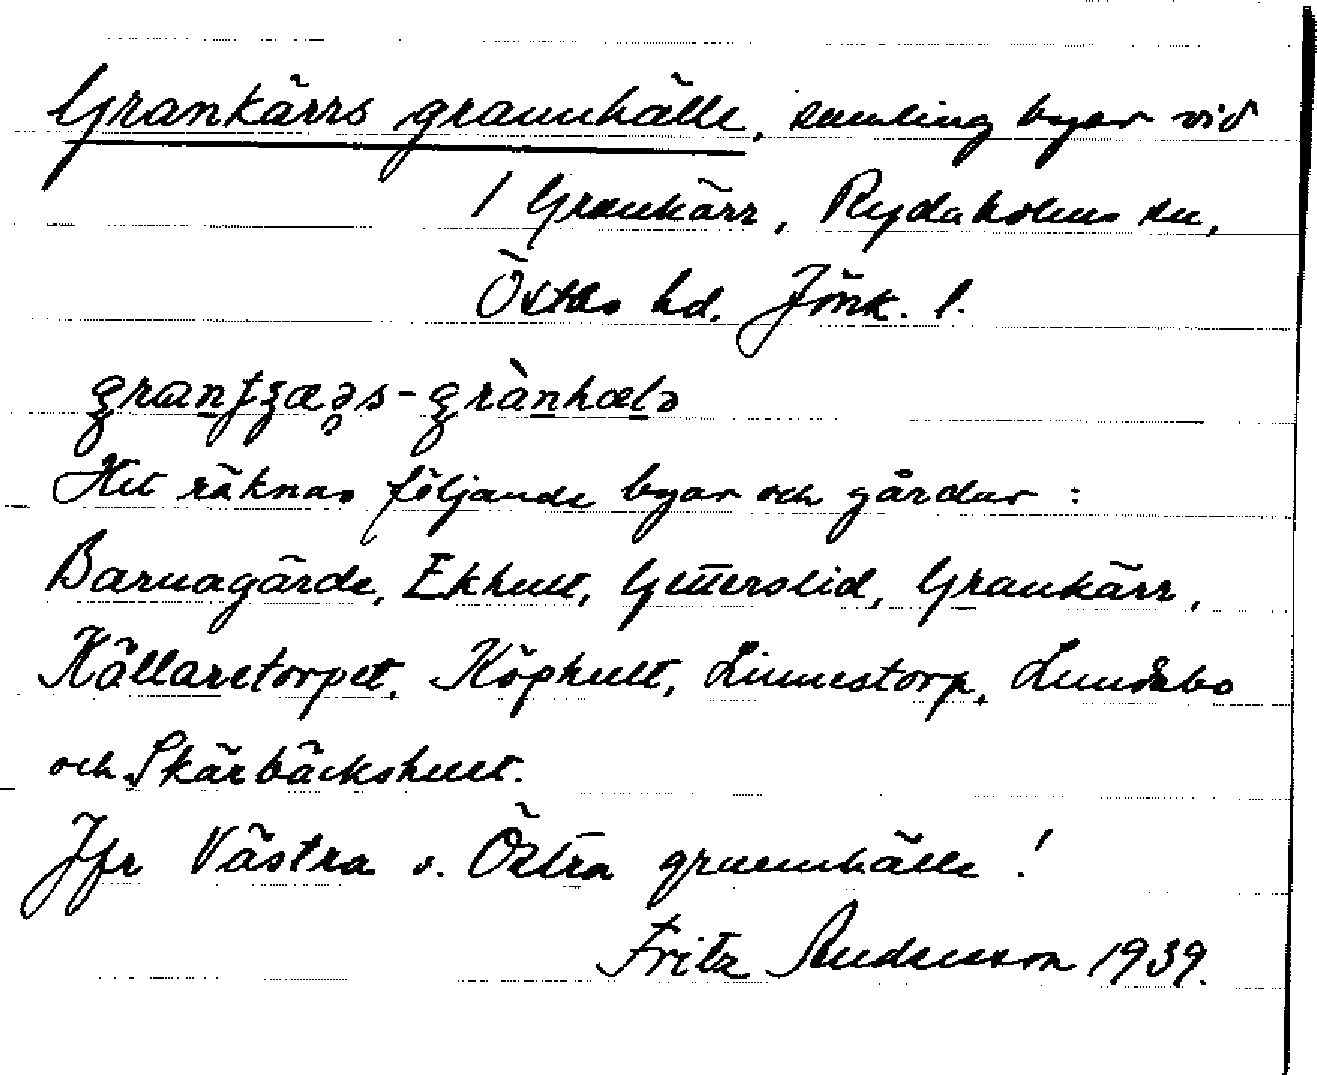 Grankärrs grannhälle, samling byar vid
1 Grankärr, Rydaholms sn,
Östbo hd. Jönk. l.
Hit räknas följande byar och gårdar :
Barnagärde, Ekhult, Getterslid, Grankärr,
Källaretorpet, Köphult, Linnestorp, Lundsbo
och Skärbäckshult.
Jfr Västra o. Östra grannhälle !
Fritz Andersson 1939.